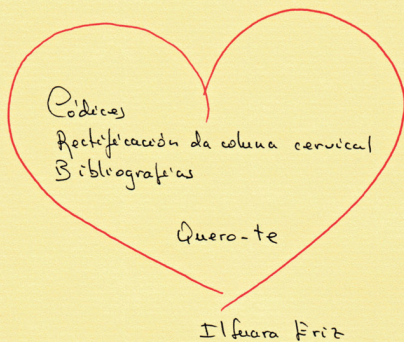 Códices
Rectificación da coluna cervical
Bibliografías
Quero-te